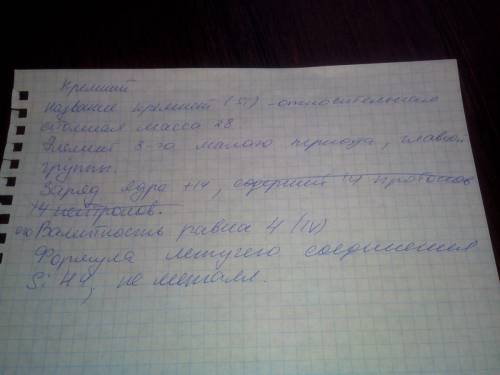 Кремний
название кремний (Si) - относительная
атомная масса 28
Элемент 3-го малого периода, главной
группы.
Заряд ядра +14, содержит 14 протонов
14 нейтронов.
Валентность равна 4 (IV)
Формула летучего соединения
SiH4, не металл.